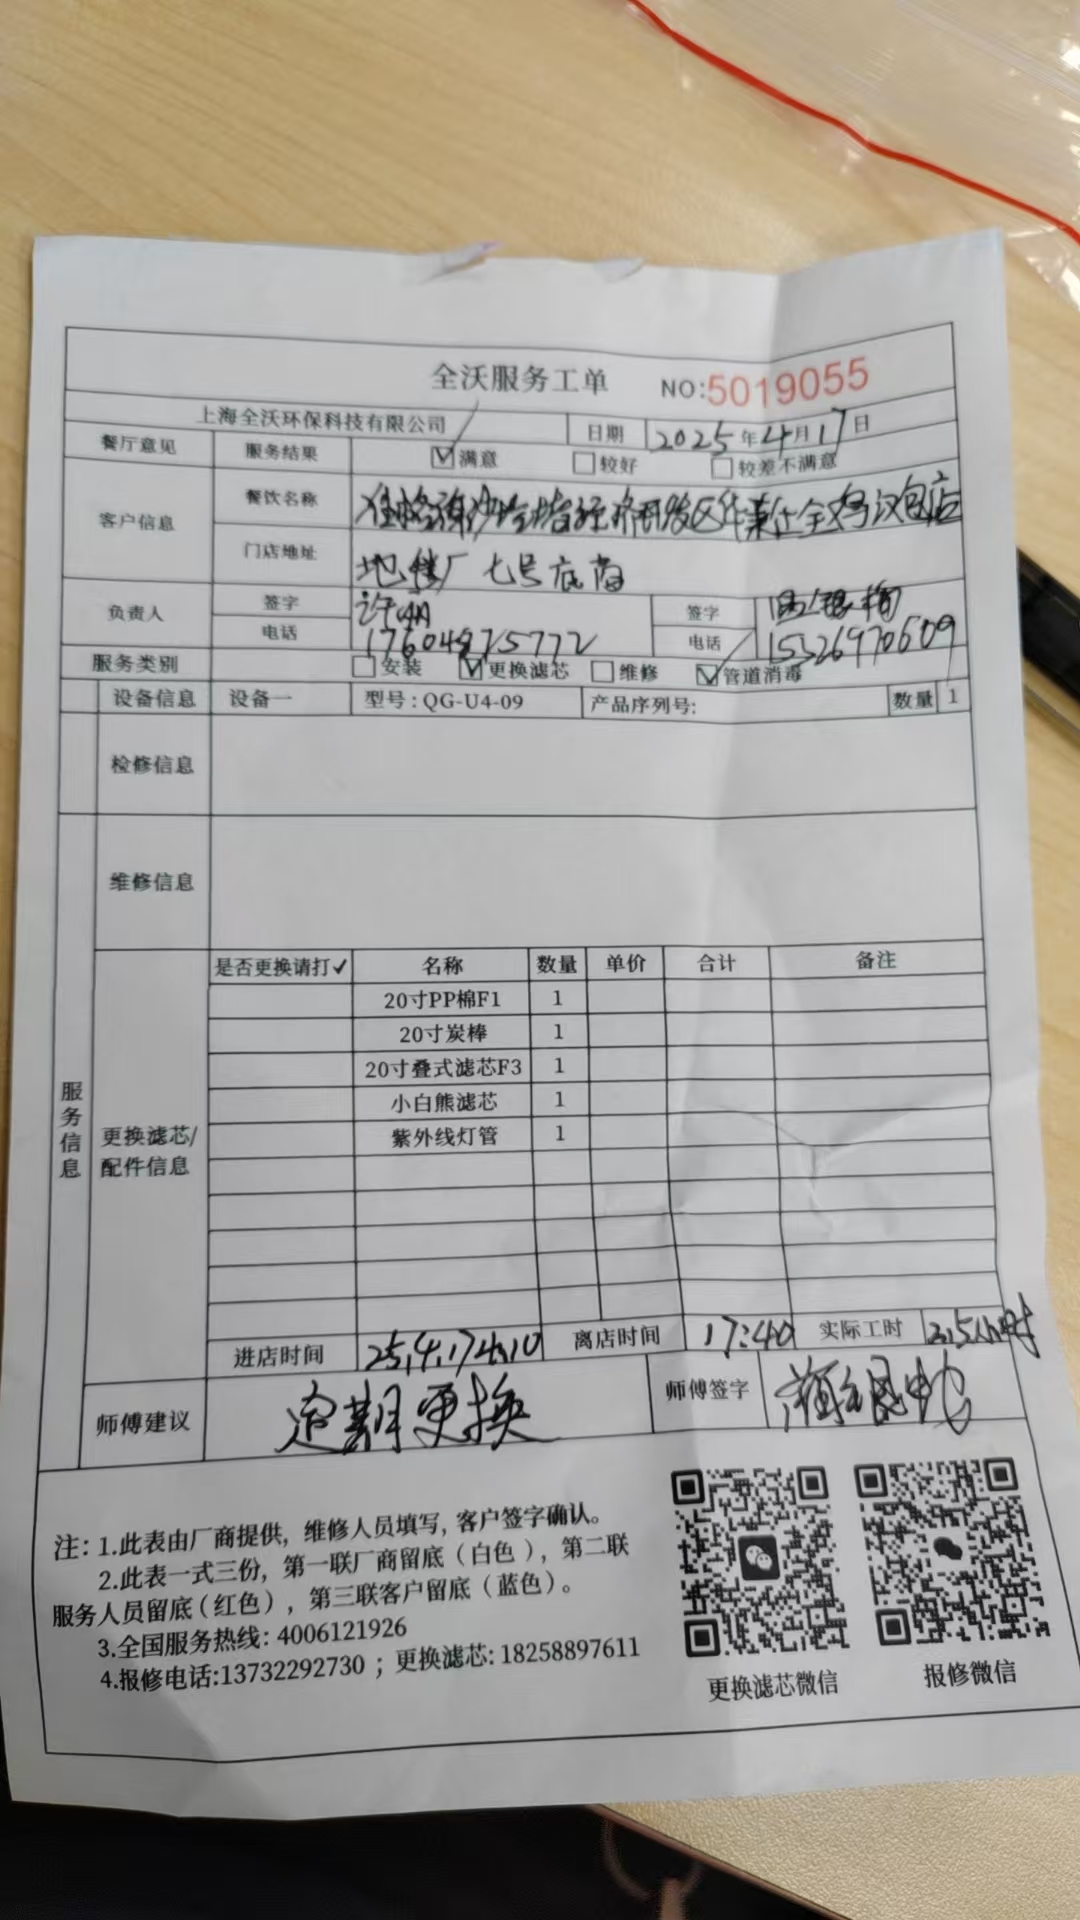 全沃服务工单 NO:5019055
上海全沃环保科技有限公司 日期 2025年4月17日
餐厅意见 服务结果 ☑满意 □较好 □较差不满意
客户信息 餐饮名称 经济开发区 全鸡汉包店
门店地址 七号底商
负责人 签字 许 签字
电话 电话 15326970609
服务类别 □安装 ☑更换滤芯 □维修 ☑管道消毒
设备信息 设备一 型号：QG-U4-09 产品序列号: 数量 1
检修信息
维修信息
服务信息
更换滤芯/配件信息
是否更换请打✓ 名称 数量 单价 合计 备注
20寸PP棉F1 1
20寸炭棒 1
20寸叠式滤芯F3 1
小白熊滤芯 1
紫外线灯管 1
进店时间 离店时间 17:40 实际工时
师傅建议 定期更换 师傅签字
注：1.此表由厂商提供，维修人员填写，客户签字确认。
2.此表一式三份，第一联厂商留底（白色），第二联
服务人员留底（红色），第三联客户留底（蓝色）。
3.全国服务热线：4006121926
4.报修电话:13732292730；更换滤芯: 18258897611
更换滤芯微信 报修微信